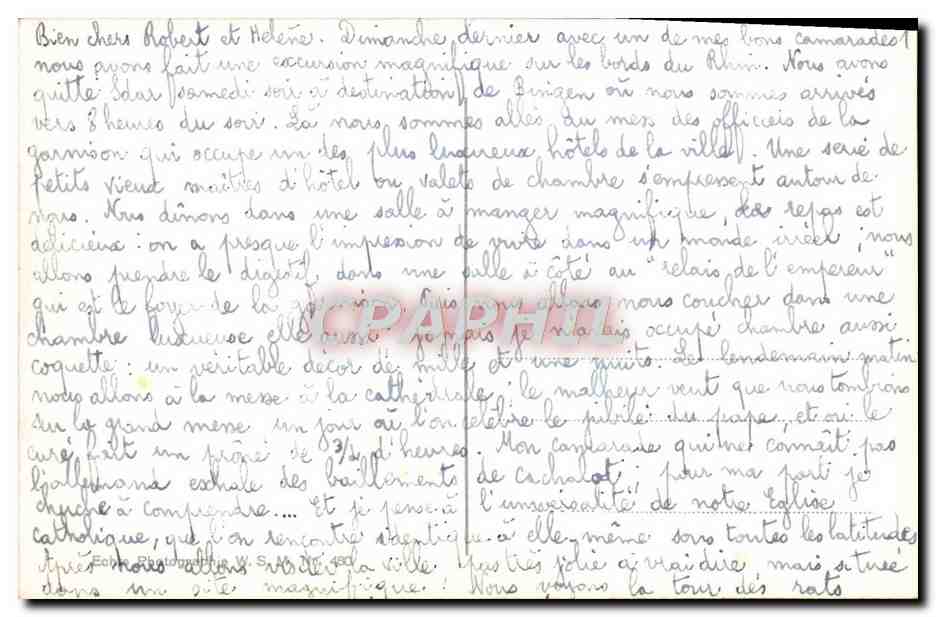 Bien chers Robert et Helène. Dimanche dernier avec un de mes bons camarades
nous avons fait une excursion magnifique sur les bords du Rhin. Nous avons
quitté Idar samedi soir à destination de Bingen où nous sommes arrivés
vers 8 heures du soir. Là nous sommes allés au mess des officiers de la
garnison qui occupe un des plus luxueux hôtels de la ville. Une série de
petits vieux maîtres d'hôtel ou valets de chambre s'empressent autour de
nous. Nous dînons dans une salle à manger magnifique, le repas est
délicieux : on a presque l'impression de vivre dans un monde irréel ; nous
allons prendre le digestif dans une salle à côté au "relais de l'empereur"
qui est le foyer de la garnison. Puis nous allons nous coucher dans une
chambre luxueuse elle aussi jamais je n'avais occupé chambre aussi
CPAPHIL
coquette : un véritable décor de mille et une nuits. Le lendemain matin
nous allons à la messe à la cathédrale : le malheur veut que nous tombions
sur la grand messe un jour où l'on célèbre le jubilé du pape, et où le
curé fait un prône de 3/4 d'heures. Mon camarade qui ne connêit pas
l'allemand exhale des baillements de cachalot ; pour ma part je
cherche à comprendre.... Et je pense à l'universalité de notre Eglise
catholique, que l'on rencontre identique à elle même sous toutes les latitudes
Après nous allons visiter la ville pas très jolie à vrai dire, mais située
Photographie W. S. M. No. 480
dans un site magnifique ! Nous voyons la tour des rats